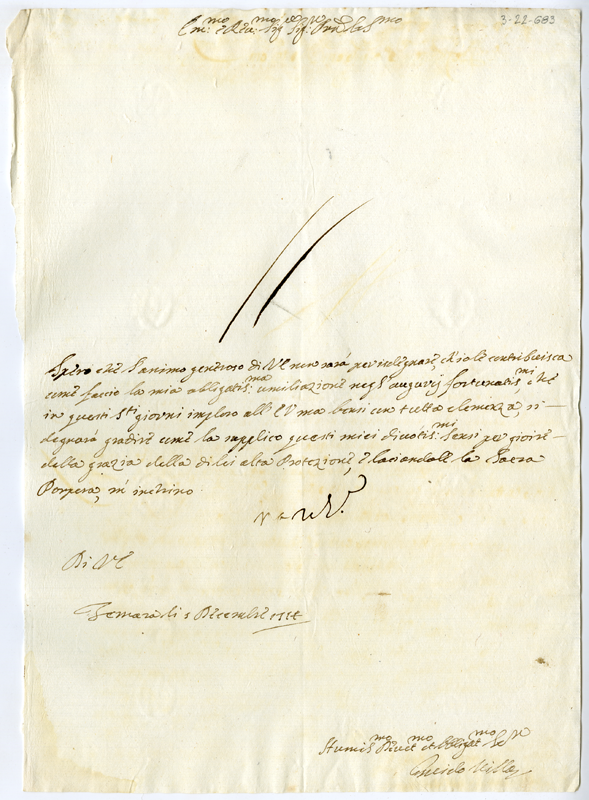 3-22-693
Em:mo e Rev:mo Sig:re Sig:re Pron Col:mo
Spero che l'animo generoso di V E non sarà per isdegnare, ch'io le contribuisca
come faccio la mia obligatis:ma umiliazione negl'augurij fortunatis:mi, che
in questi S:ti giorni imploro all' E V ma bensi con tutta clemenza, si
degnarà gradire come la supplico questi miei divotis:mi sensi per gioire
della grazia della di lei alta Protezione, e baciandole la Sacra
Porpora, m'inchino
Di V E
Ferrara li Decembre
Humil:mo Divot:mo et Obligat:mo Se:re
Guido Villa